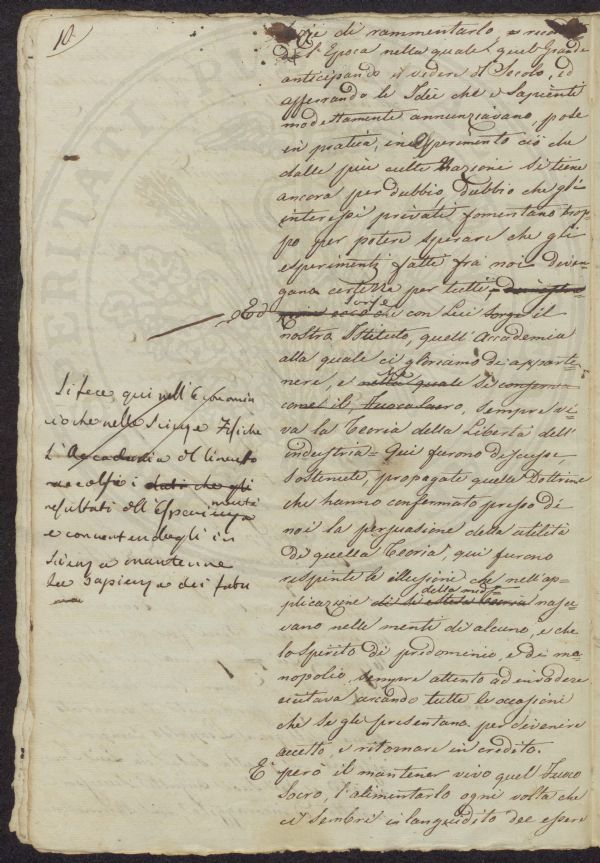 10.
di rammentarlo, e
di l'Epoca nella quale quel Grande
anticipando il vedere del Secolo, ed
afferrando le Idee che i Sapienti
modestamente annunziavano, pose
in pratica, in esperimento ciò che
dalle più culte Nazioni si tiene
ancora per dubbio, dubbio che gli
interessi privati fomentano trop=
po per potere sperare che gli
esperimenti fatti fra noi diven=
gano certezza per tutti,
Ed con Lui Sorge il
nostro Istituto, quell'Accademia
alla quale ci gloriamo di apparte=
nere, e nella quale si conserva
come il fuoco sacro, sempre vi=
va la Teoria della Libertà dell'
industria = Qui furono discusse
sostenute, propagate quelle Dottrine
che hanno confermato presso di
noi la persuasione della utilità
di quella Teoria, qui furono
respinte le illusioni che nell'ap=
plicazione della med.ª nasce=
vano nelle menti di alcuno, e che
lo spirito di predominio, e di mo=
nopolio, sempre attento ad invadere
tutte le occasioni
che se gli presentano per divenire
accetto, e ritornare in credito.
E però il mantener vivo quel Fuoco
Sacro, l'alimentarlo ogni volta che
ci sembri illanguidito dee essere
Si fece qui nell'Economia
ciò che nelle Scienze Fisiche
l'Accademia del Cimento
raccolse i dati che gli
resultati dell'Esperienza
e convertendogli in
Scienza mantenne
la Sapienza dei